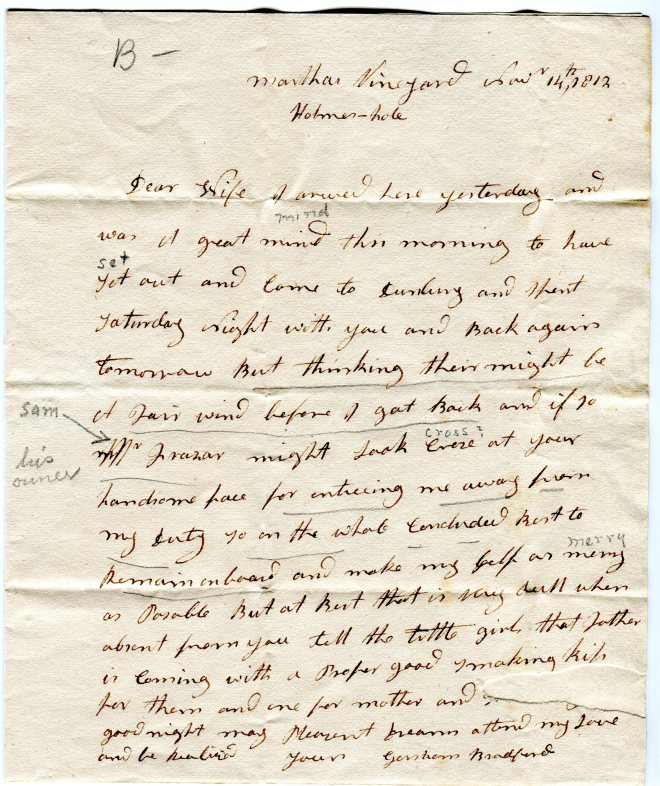 B -
Marthas Vineyard Novr 14th 1812
Holmes-hole
Dear Wife I arived here yesterday and
mind
was of great mind this morning to have
set
Set out and Come to Duxbury and Spent
Saturday Night with you and Back again
tomorrow But thinking their might be
A Fair wind before I got Back and if so
sam
cross?
Mr Frazar might Look Crose at your
his
owner
handsome face for inticeing me away from
my Duty so on the whole Concluded Best to
merry
Remain onboard and make my Self as merry
as Posable But at Best that is very dull when
absent from you tell the little girls that Father
is Coming with a Proper good smaking kiss
for them and one for mother and
good night may Pleasent Dreams attend my Love
and be Realised Yours Gershom Bradford